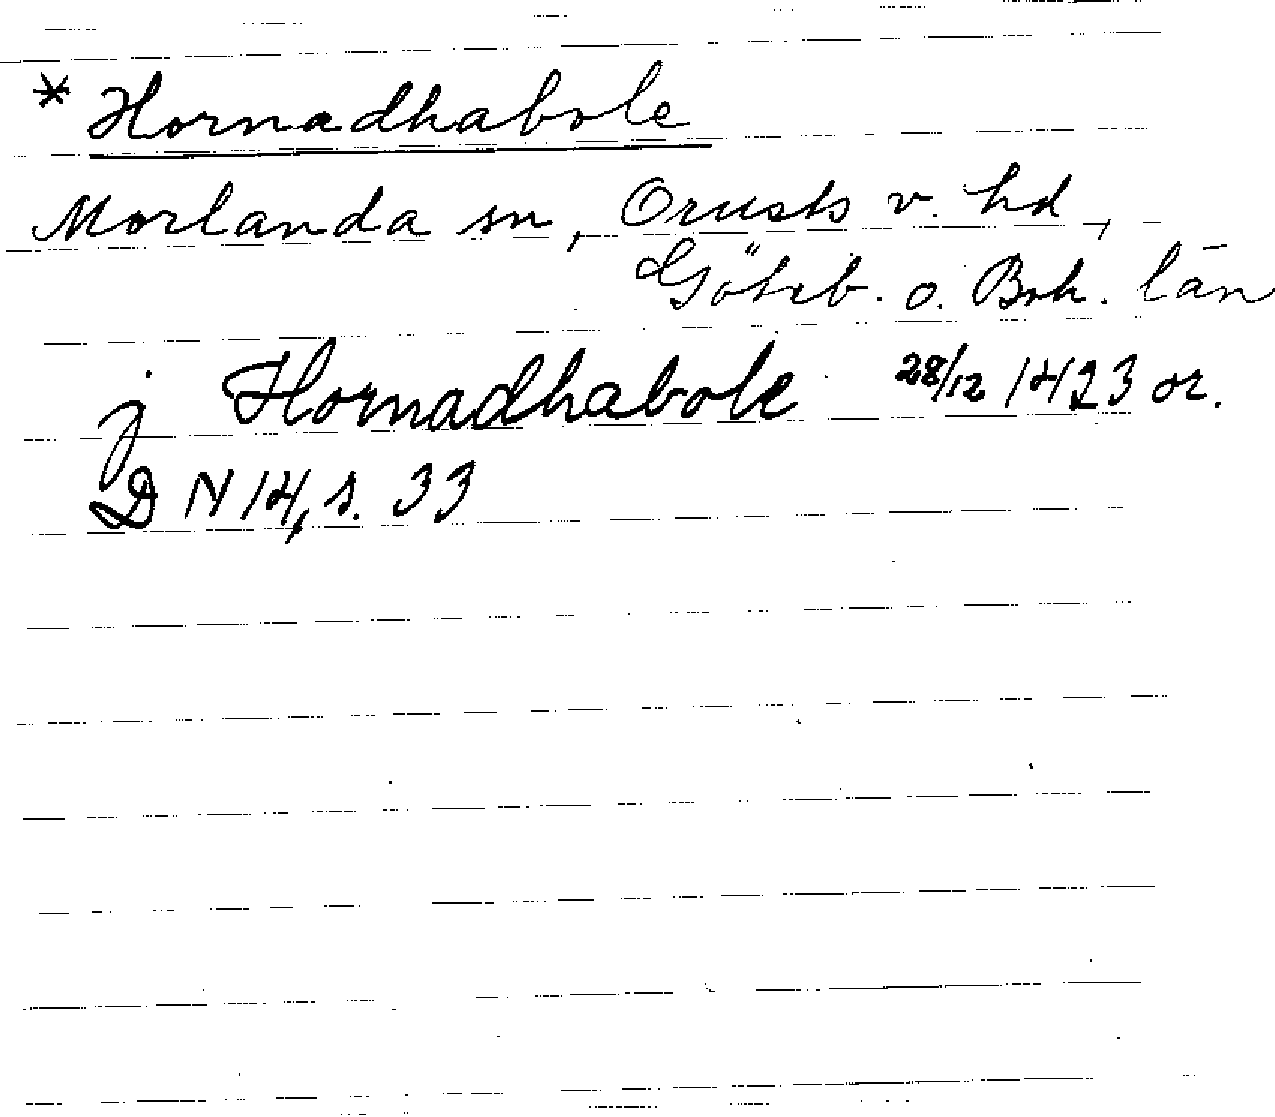 * Hornadhabole
Morlanda sn, Orusts v. hd,
Göteb. o. Boh. län
j Hornadhabole 28/12 1423 or.
DN 14, s. 33